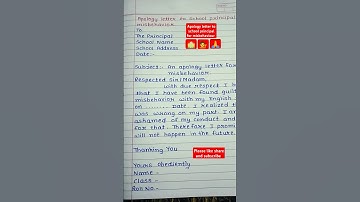 Apology letter on School principal
misbehavior
Apology letter to
school principal
for misbehaviour
To
The Principal
School Name
School Address
Date:-
Subject:- An apology letter for
misbehavior
Respected Sir/Madam,
With due respect I
that I have been found guilt
misbehavior with my English
on ......... Day. I realized t
was wrong on my part. I a
ashamed of my conduct and
for that. Therefore I promi
will not happen in the future.
Please like share
and subscribe
Thanking You
Yours obediently
Name -
Class -
Roll No -